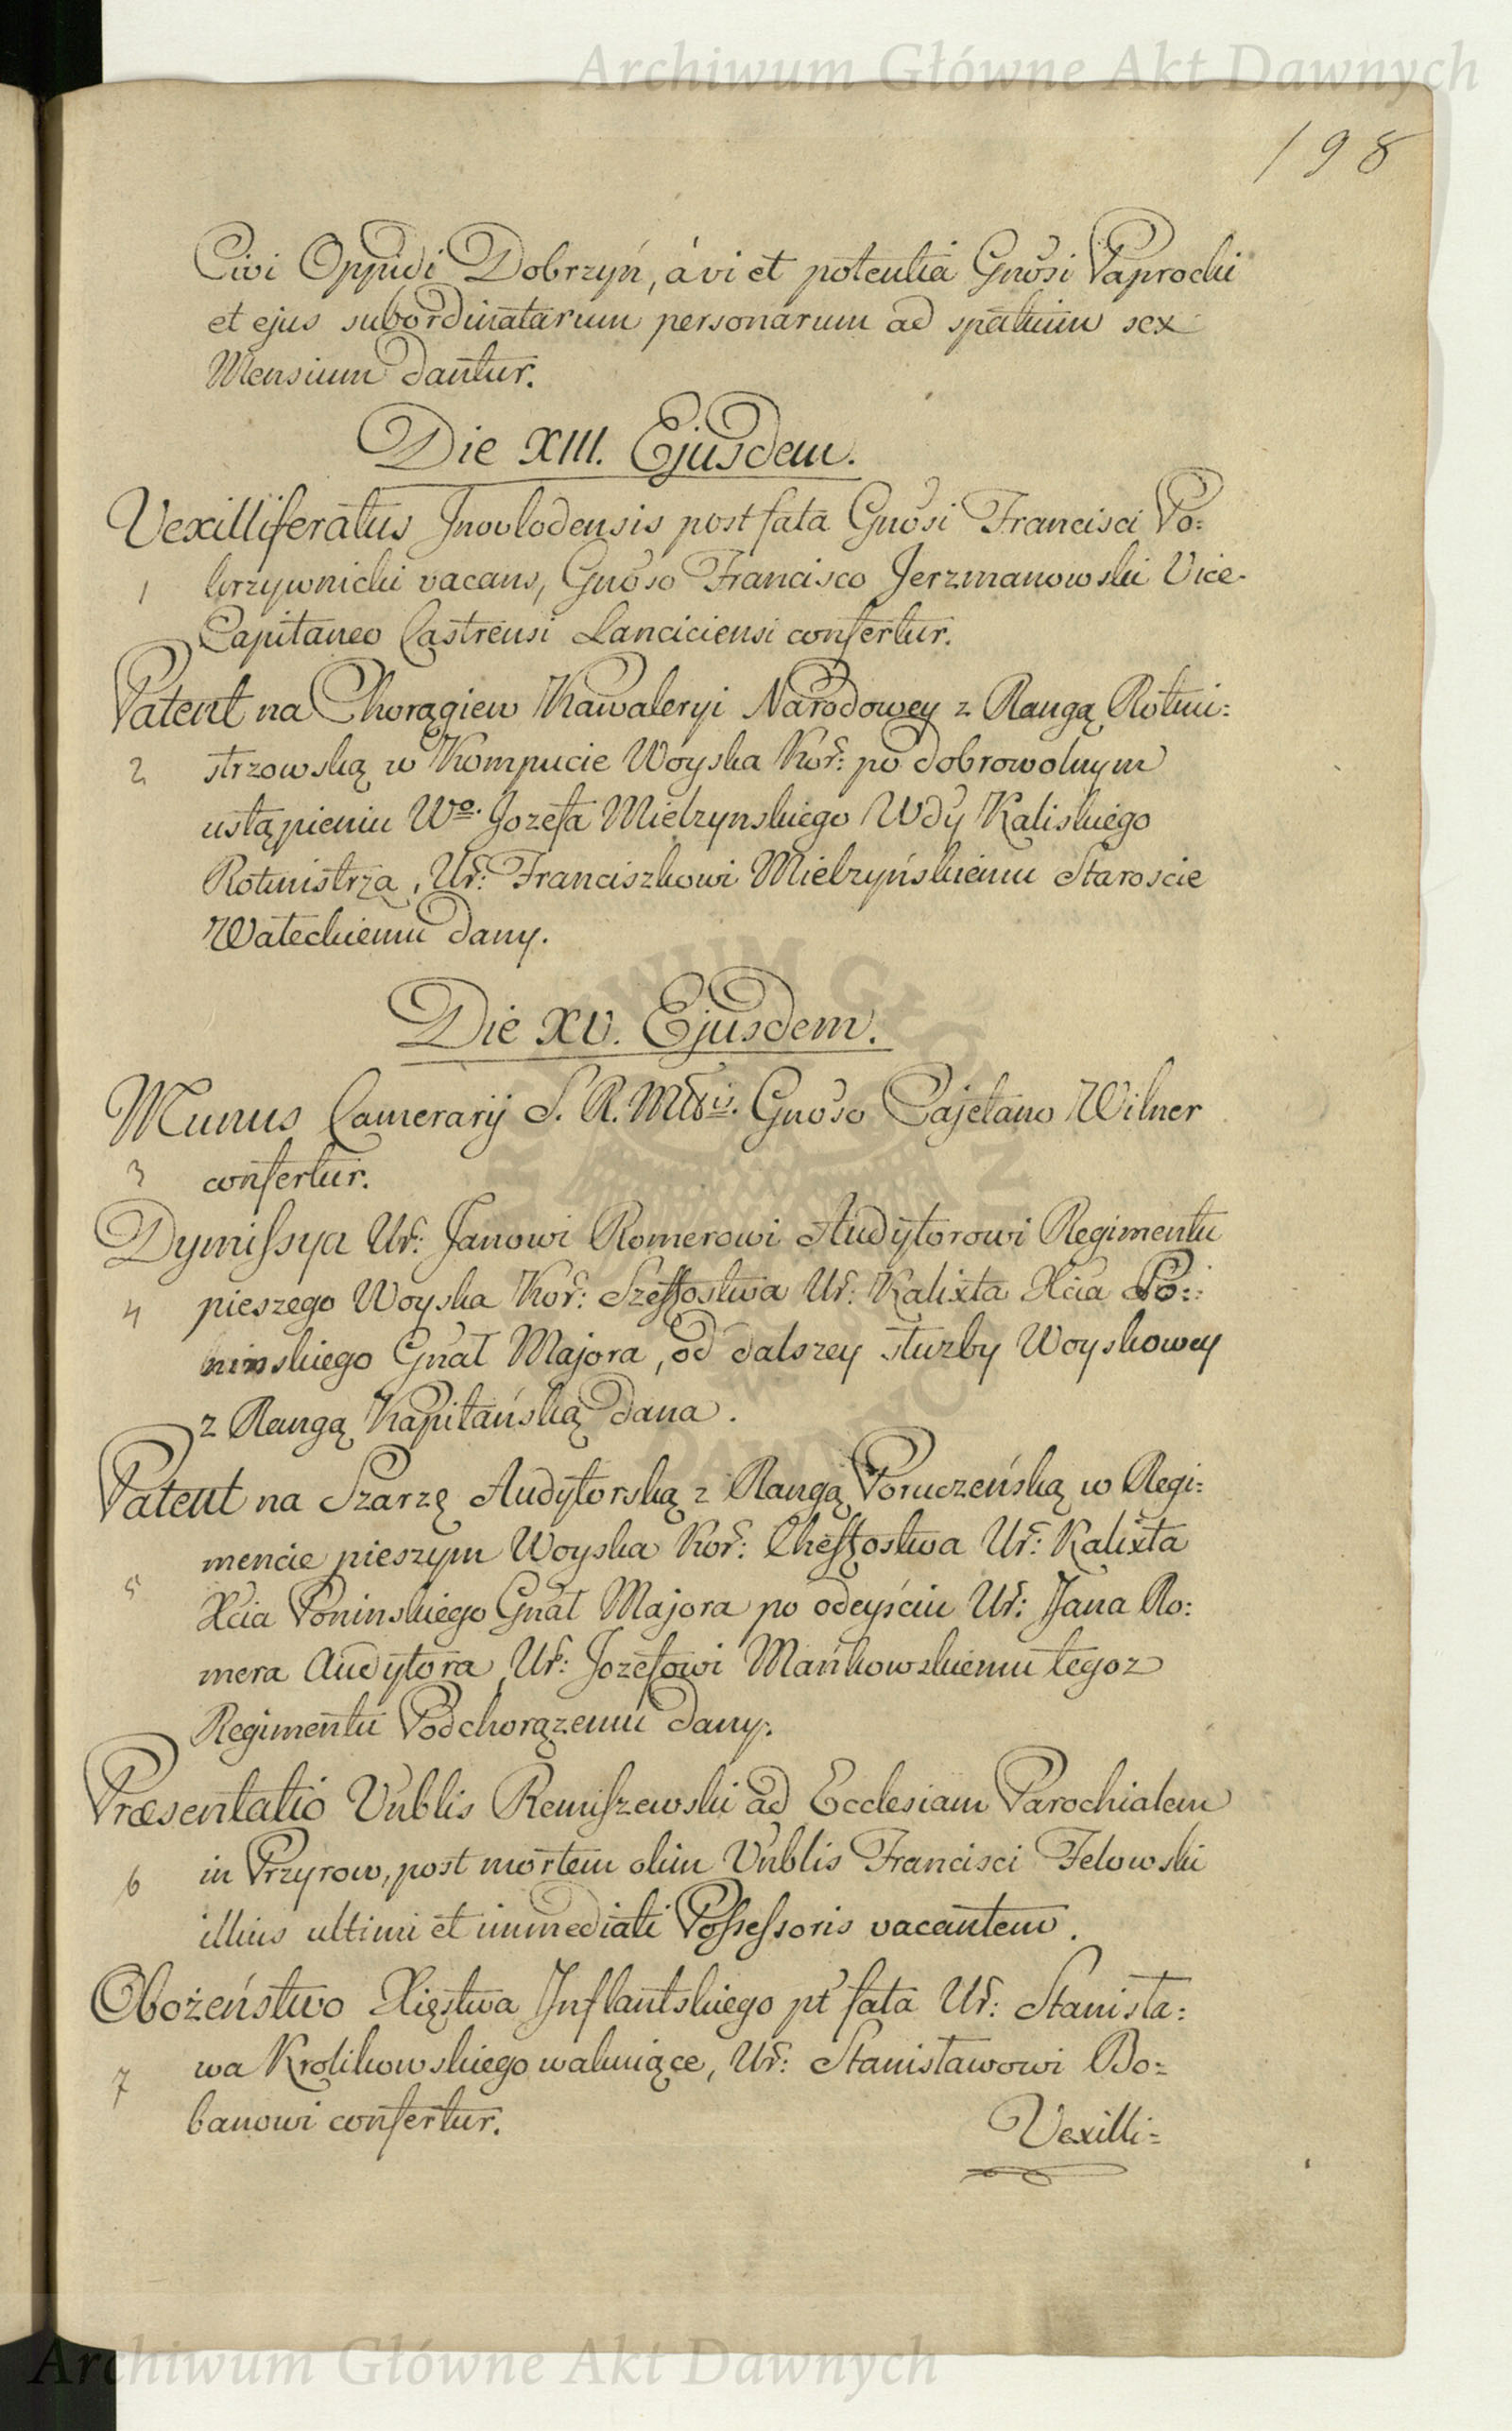 Archiwum Główne Akt Dawnych
198
Civi Oppidi Dobrzyń, à vi et potentia Gnōsi Paprocki
et ejus subordinatarum personarum ad spatium sex
Mensium dantur.
Die XIII. Ejusdem.
Vexilliferatus Jnovlodensis post fata Gnōsi Francisci Po=
1 krzywnicki vacans, Gnōso Francisco Jerzmanowski Vice-
Capitaneo Castrensi Lanciciensi confertur.
Patent na Chorągiew Kawaleryi Narodowey z Rangą Rotmi=
2 strzowską w Kompucie Woyska Kor: po dobrowolnym
ustąpieniu Wo. Jozefa Mielzynskiego Wdy Kaliskiego
Rotmistrza, Ur: Franciszkowi Mielzyńskiemu Staroscie
Wałeckiemu dany.
Die XV. Ejusdem.
Munus Camerarij S. R. Mttis. Gnōso Cajetano Wilner
3 confertur.
Dymissya Ur: Janowi Romerowi Audytorowi Regimentu
4 pieszego Woyska Kor: Szeffostwa Ur: Kalixta Xcia Po=
ninskiego Gnał Majora, od dalszey służby Woyskowey
z Rangą Kapitańską dana.
Patent na Szarzę Audytorską z Rangą Poruczeńską w Regi=
mencie pieszym Woyska Kor: Cheffostwa Ur: Kalixta
5 Xcia Poninskiego Gnał Majora po odeyściu Ur: Jana Ro=
mera Audytora, Ur: Jozefowi Mańkowskiemu tegoz
Regimentu Podchorązemu dany.
Præsentatio Vnblis Remiszewski ad Ecclesiam Parochialem
6 in Przyrow, post mortem olim Vnblis Francisci Felowski
illius ultimi et immediati Possessoris vacantem.
Obożeństwo Xięstwa Jnflantskiego pt fata Ur: Stanisła=
7 wa Krolikowskiego wakuiące, Ur: Stanisławowi Bo=
banowi confertur.
Vexilli=
Archiwum Główne Akt Dawnych